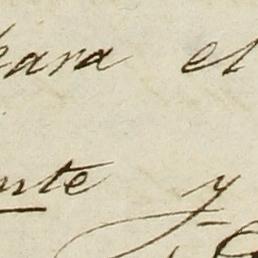 para el
nte y